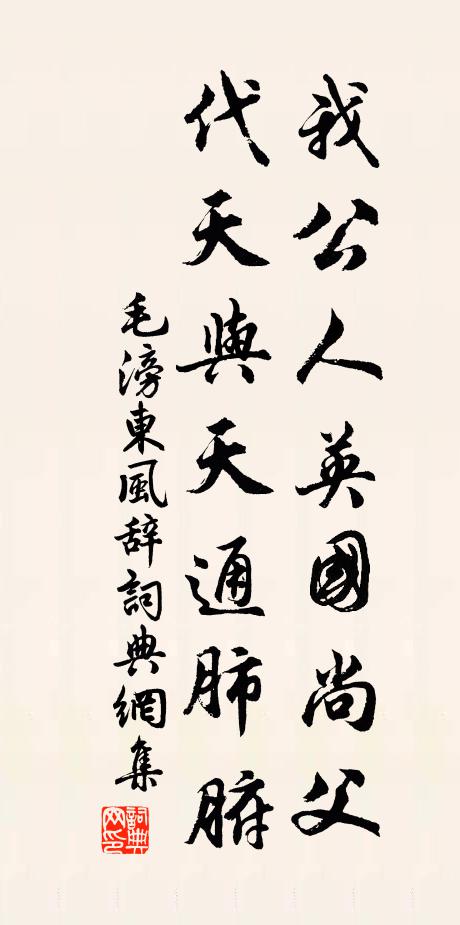 我公人英國尚父
代天與天通肺腑
毛滂東風辞詞典網集
詞典網印